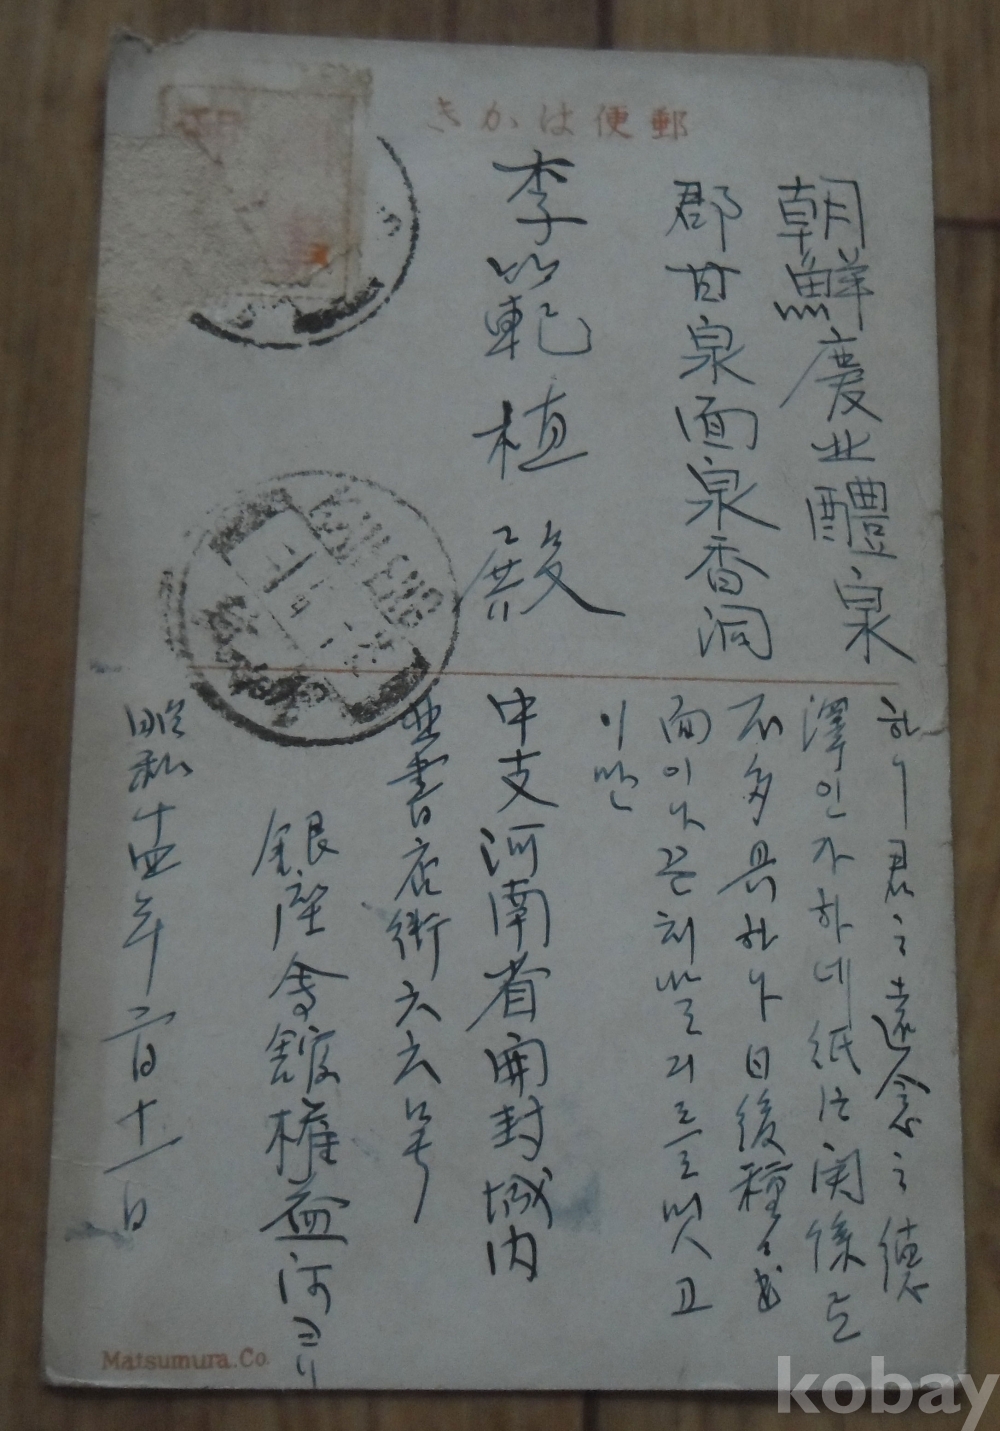 郵便はがき
朝鮮慶北醴泉
郡甘泉面泉香洞
李範植殿
하니君之遠念之德
澤인가하네紙片関係로
不多具하나日後種々書
面이나끈치말기를믿고
이만
中支河南省開封城内
書店街六六号
銀座會館權益河
昭和十四年二月十一日
KAIFENG
Matsumura.Co.
kobay